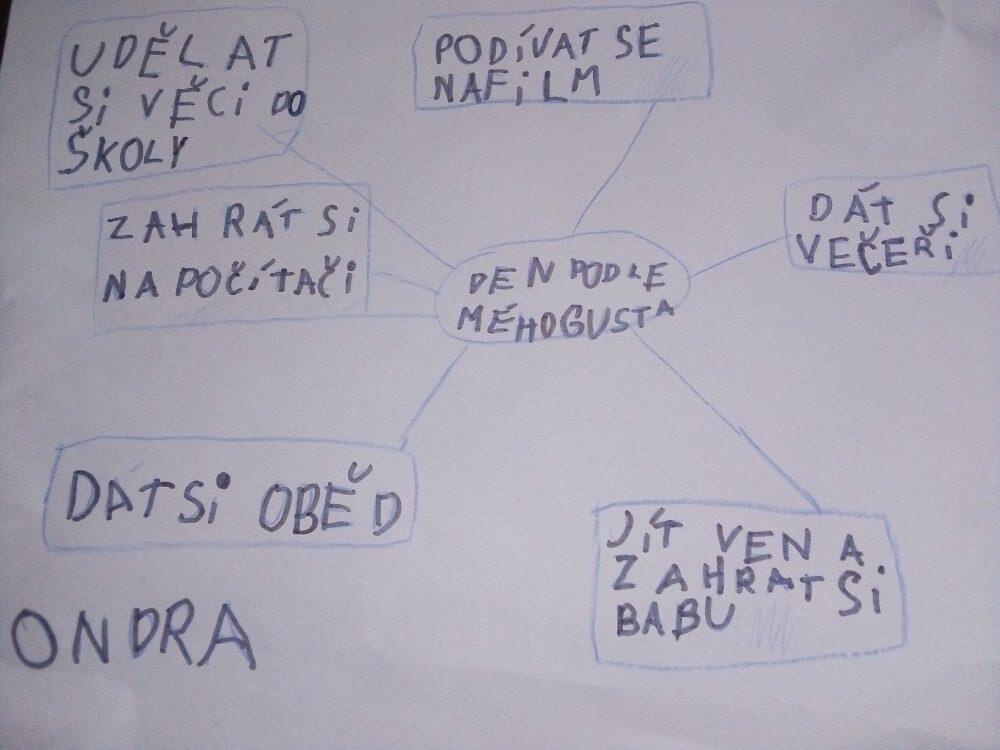 UDĚLAT
Si VĚCi DO
ŠKOLY
PODíVAT SE
NA FiLM
ZAHRÁT Si
NA POČíTAČi
DEN PODLE
MÉHO GUSTA
DÁT Si
VEČEŘi
DÁT Si OBĚD
JíT VEN A
ZAHRAT Si
BABU
ONDRA